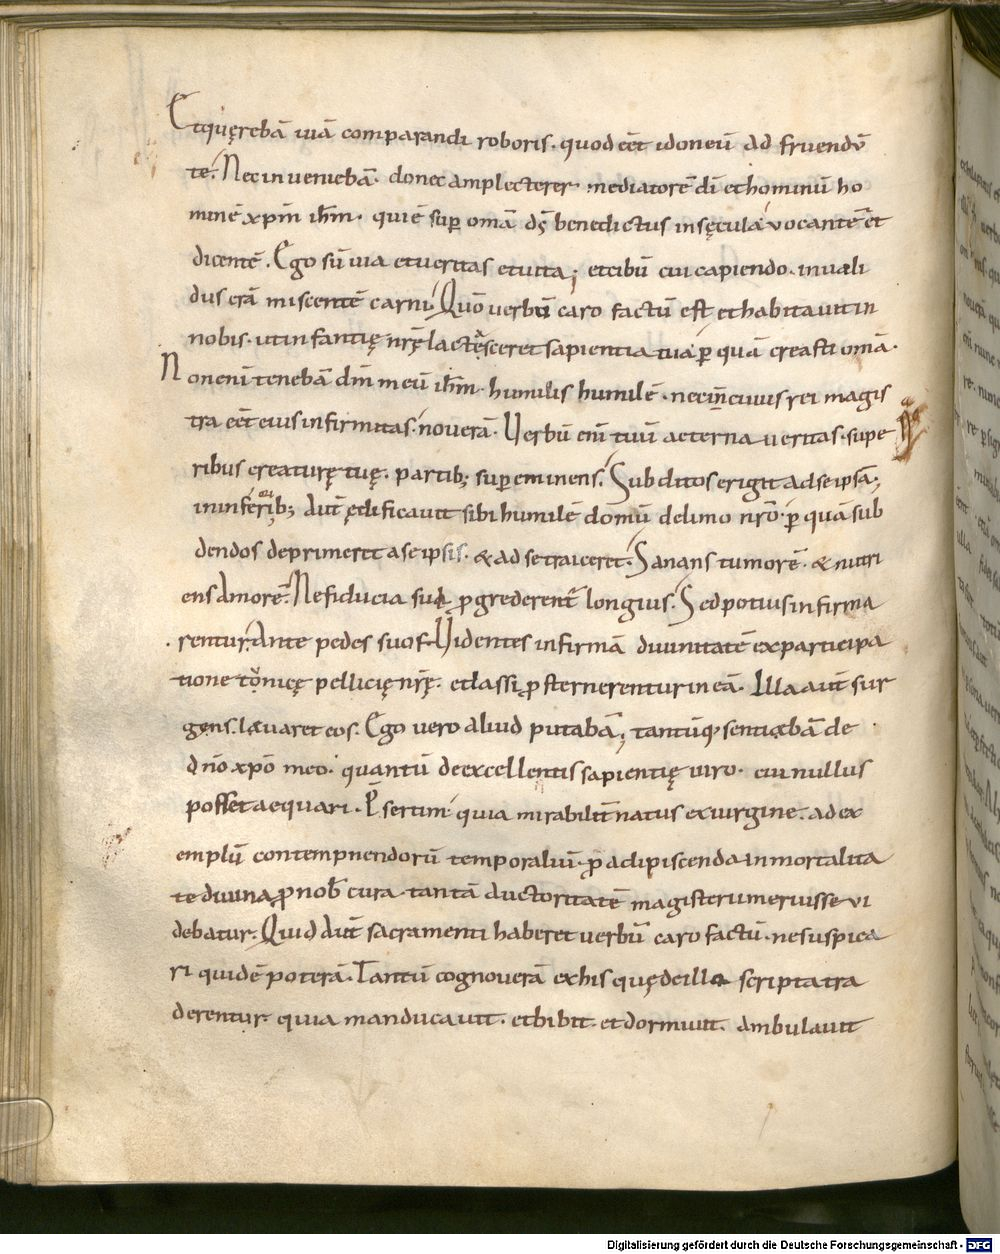 Etquęrebā uiā comparandi roboris. quod eēt idoneū ad fruendū
te. Nec inueniebā. donec amplecterer mediatorē di et hominū ho
minē xp̄m ih̄m. qui ē sup̄ om̄a ds̄ benedictus in sęcula uocantē et
dicentē. Ego sū uia et ueritas et uita; et cibū cui capiendo. inuali
dus erā miscentē carni. Quō uerbū caro factū est et habitauit in
nobis. ut infantię nr̄ę lactesceret sapientia tua p̄ quā creasti om̄a.
Non enī tenebā dm̄ meū ih̄m. humilis humilē. nec in cuius rei magis
tra eēt eius infirmitas. nouerā. Uerbū enī tuū aeterna ueritas. supe
rioribus creaturę tuę. partib; sup̄ eminens. Subditos erigit ad se ipsā;
in inferiorib; aut̄ ędificauit sibi humilē domū de limo nr̄o. p̄ quā sub
dendos deprimeret a se ipsis. & ad se traiceret. Sanans tumorē. & nutri
ens amorē. Ne fiducia sui p̱grederent̄ longius. Sed potius infirma
rentur. Ante pedes suos. Uidentes infirmā diuinitatē ex participa
tione tonicę pellicię nr̄ę. et lassi p̱sternerentur in eā. Illa aut̄ sur
gens. leuaret eos. Ego uero aliud putabā; tantūq; sentiebā de
dn̄o xp̄o meo. quantū de excellentis sapientię uiro. cui nullus
posset aequari. P̄sertim quia mirabilit̄ natus ex uirgine. ad ex
emplū contempnendorū temporaliū. p̱ adipiscenda inmortalita
te diuina p̱ nob̄ cura. tantā auctoritatē magisterii meruisse ui
debatur. Quid aut̄ sacramenti haberet uerbū caro factū. ne suspica
ri quidē poterā. Tantū cognouerā ex his quę de illo scripta tra
derentur quia manducauit. et bibit. et dormiuit. ambulauit
Digitalisierung gefördert durch die Deutsche Forschungsgemeinschaft - DFG